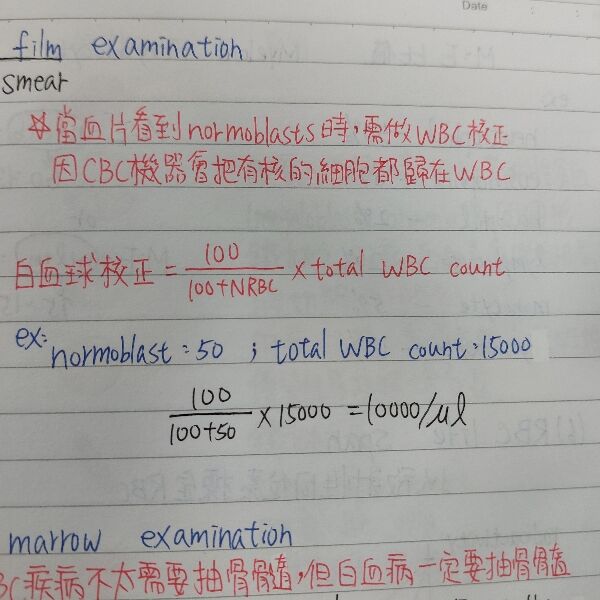 Date
film examination
smear
☆當血片看到normoblasts時,需做WBC校正
因CBC機器會把有核的細胞都歸在WBC
白血球校正 = 100/100+NRBC × total WBC count
ex: normoblast : 50 ; total WBC count : 15000
100/100+50 × 15000 = 10000/ul
marrow examination
BC疾病不太需要抽骨髓,但白血病一定要抽骨髓